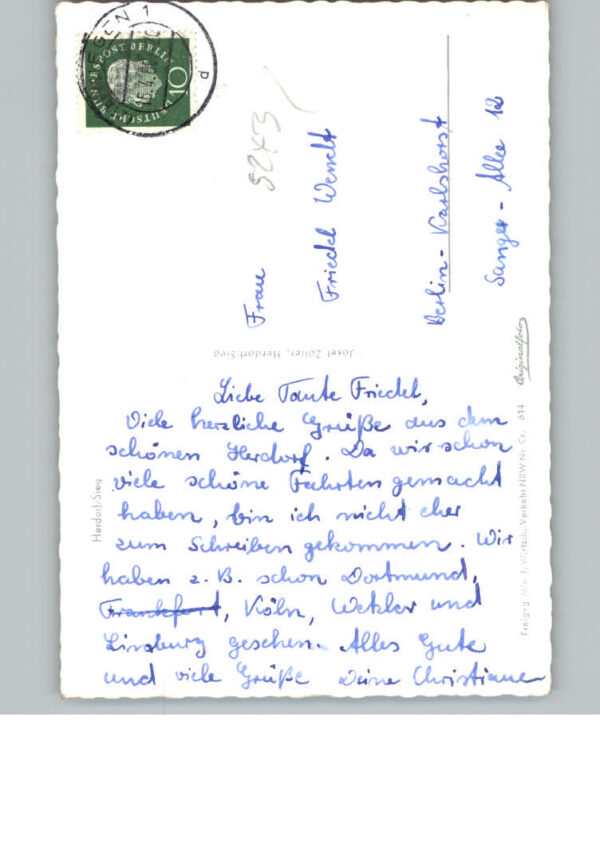 10
DEUTSCHE BUNDESPOST BERLIN
1
d
Frau
Friedel
Berlin-Karlshorst
Sanger-Allee 12
Josef Zöller, Herdorf/Sieg
Originalfoto
Herdorf/Sieg
Liebe Tante Friedel,
Viele herzliche Grüße aus dem
schönen Herdorf. Da wir schon
viele schöne Fahrten gemacht
haben, bin ich nicht eher
zum Schreiben gekommen. Wir
haben z. B. schon Dortmund,
Frankfort, Köln, Wetzler und
Limburg gesehen. Alles Gute
und viele Grüße Deine Christiane